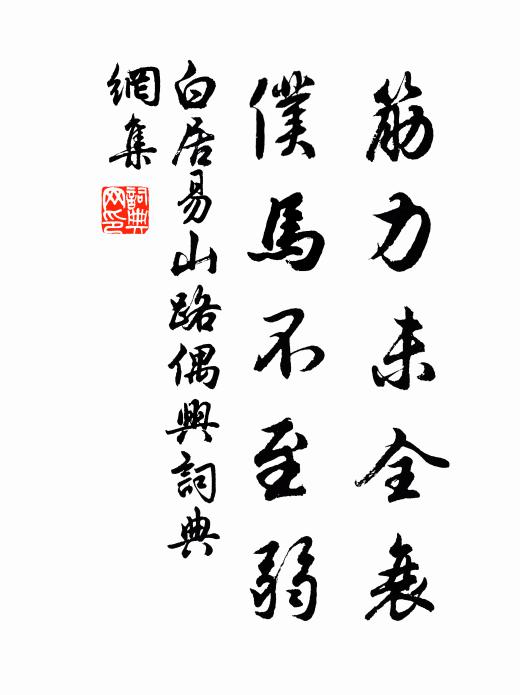 筋力未全衰
僕馬不至弱
白居易山路偶興詞典
網集
詞典
网印